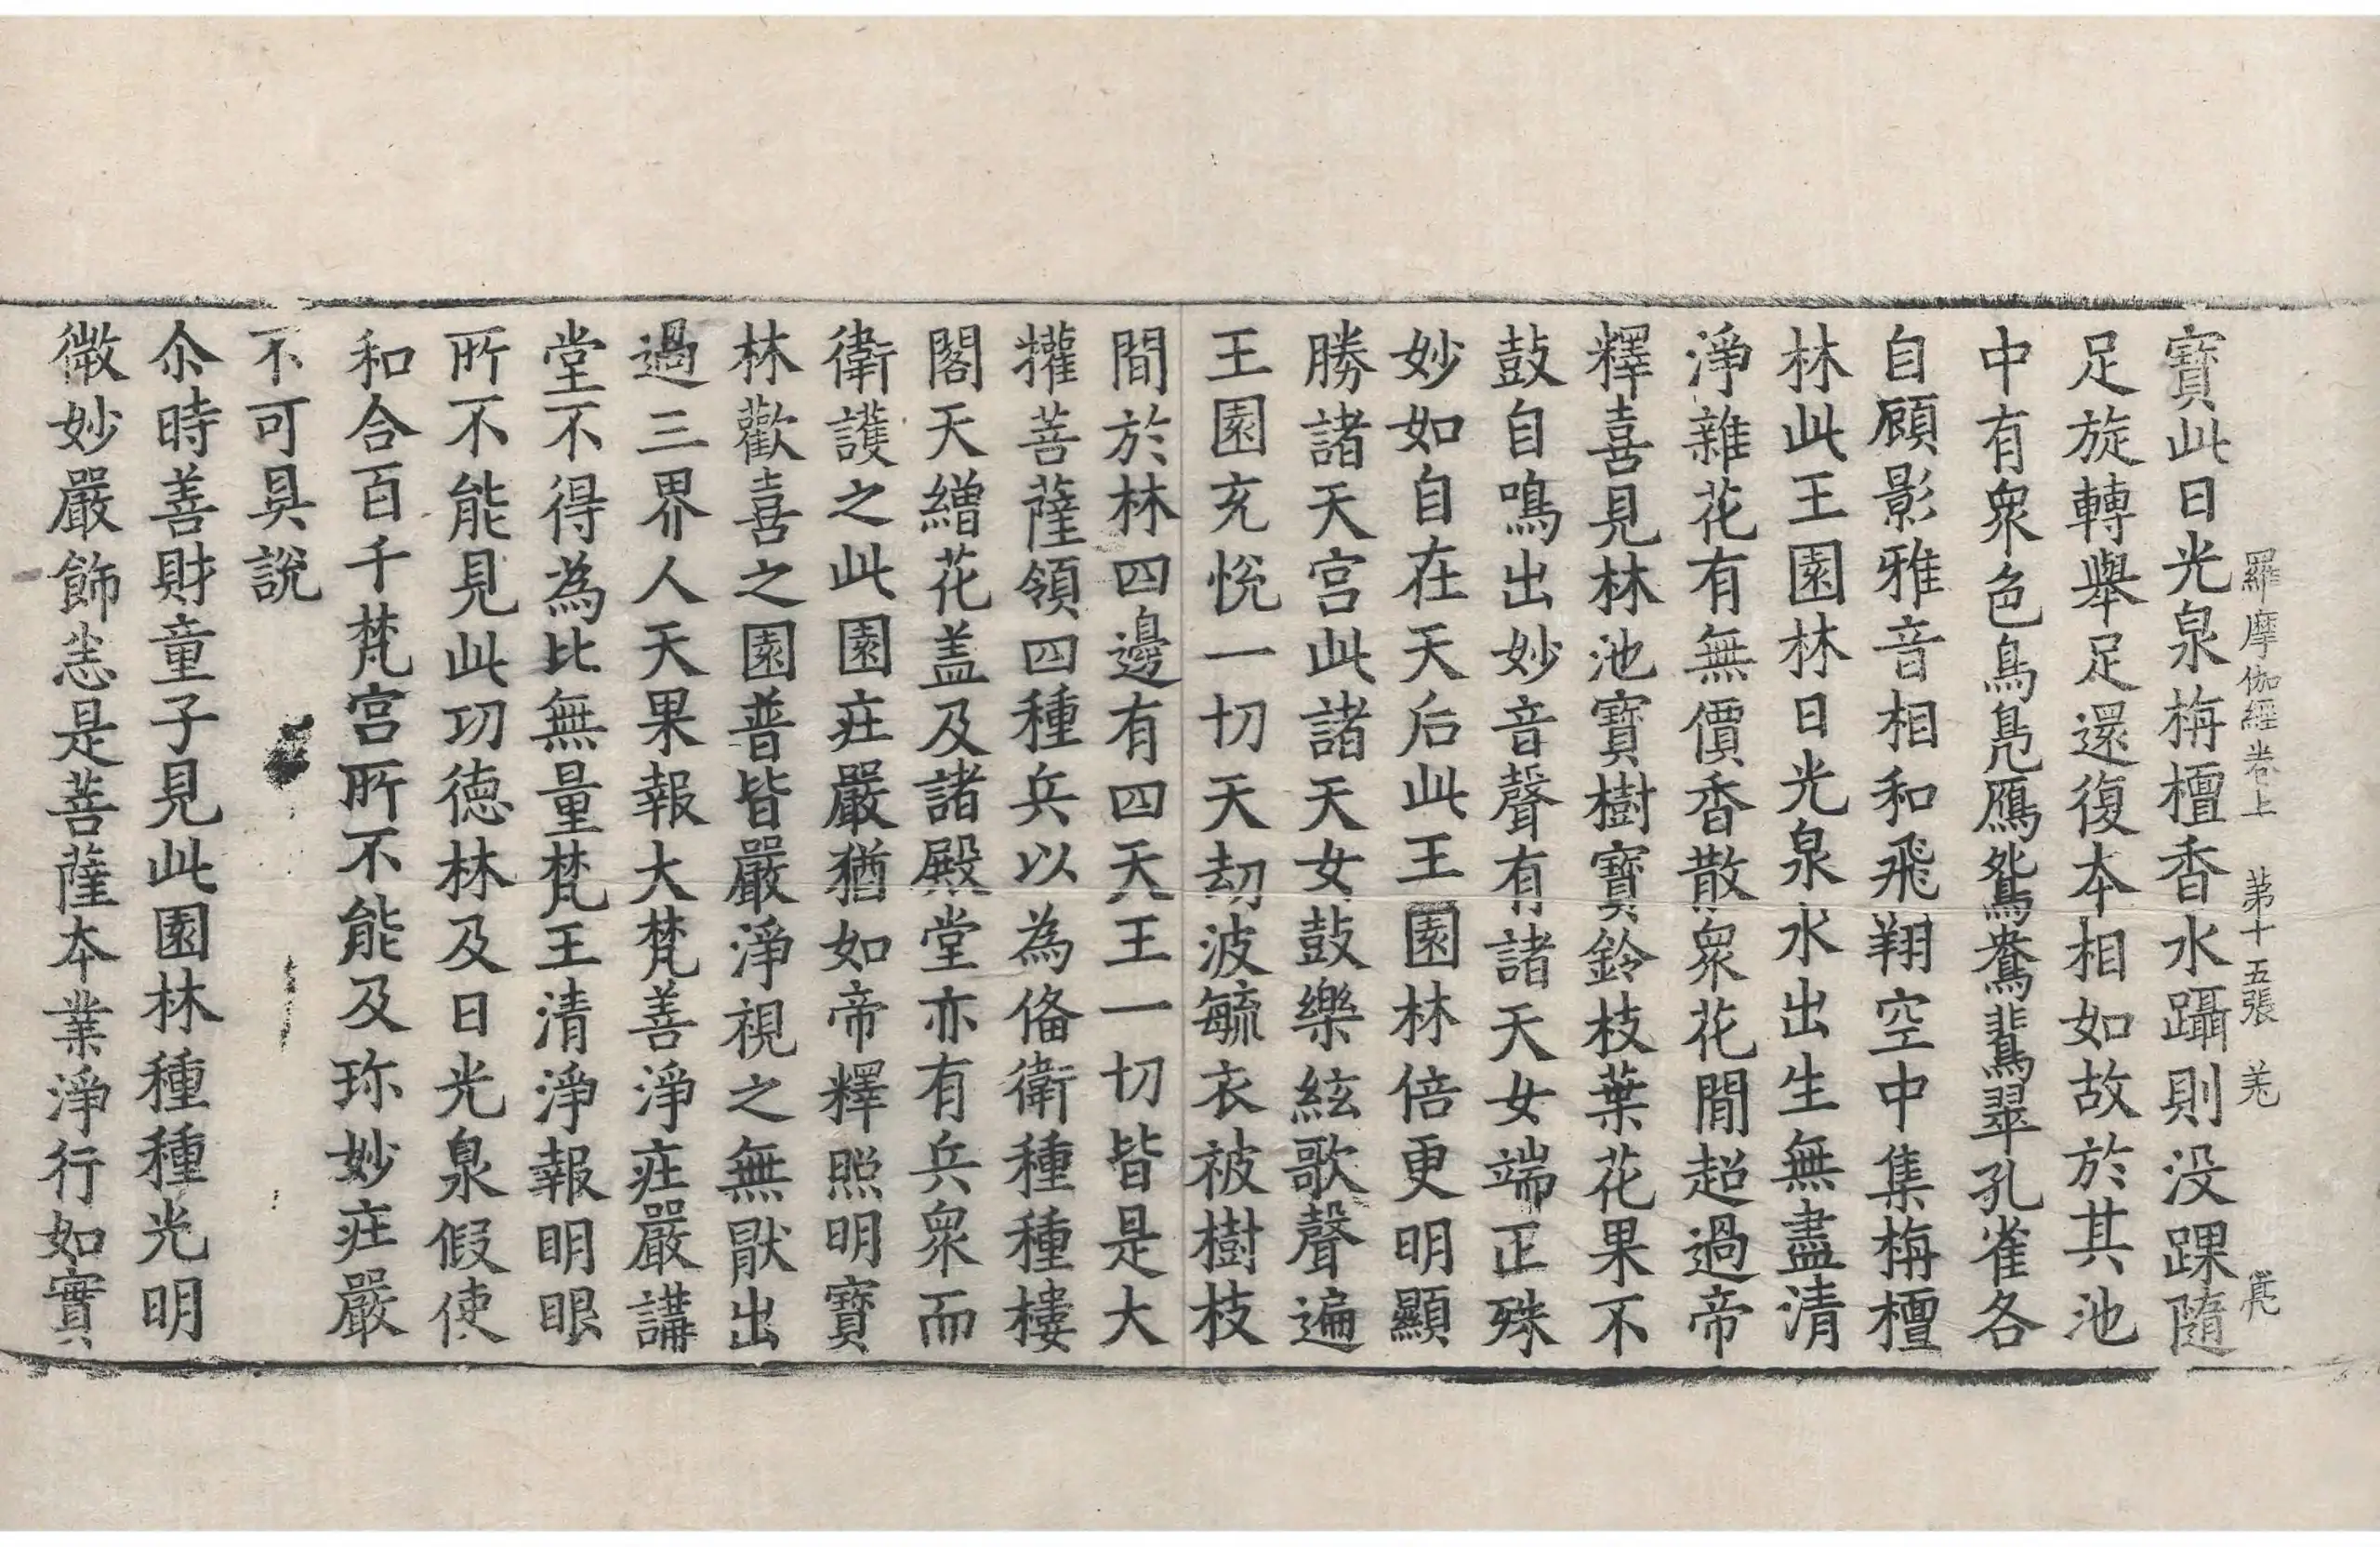 羅摩伽經卷上 第十五張 羌
寶此日光泉栴檀香水躡則没踝隨
足旋轉舉足還復本相如故於其池
中有衆色鳥鳧鴈鴛鴦翡翠孔雀各
自顧影雅音相和飛翔空中集栴檀
林此王園林日光泉水出生無盡清
淨雜花有無價香散衆花間超過帝
釋喜見林池寶樹寶鈴枝葉花果不
鼓自鳴出妙音聲有諸天女端正殊
妙如自在天后此王園林倍更明顯
勝諸天宫此諸天女鼓樂絃歌聲遍
王園充恱一切天劫波毓衣被樹枝
間於林四邊有四天王一切皆是大
權菩薩領四種兵以為俻衛種種樓
閣天繒花盖及諸殿堂亦有兵衆而
衛護之此園莊嚴猶如帝釋照明寶
林歡喜之園普皆嚴淨視之無猒出
過三界人天果報大梵善淨莊嚴講
堂不得為比無量梵王清淨報明眼
所不能見此功德林及日光泉假使
和合百千梵宫所不能及珎妙莊嚴
不可具說
尒時善財童子見此園林種種光明
微妙嚴飾恙是菩薩本業淨行如實